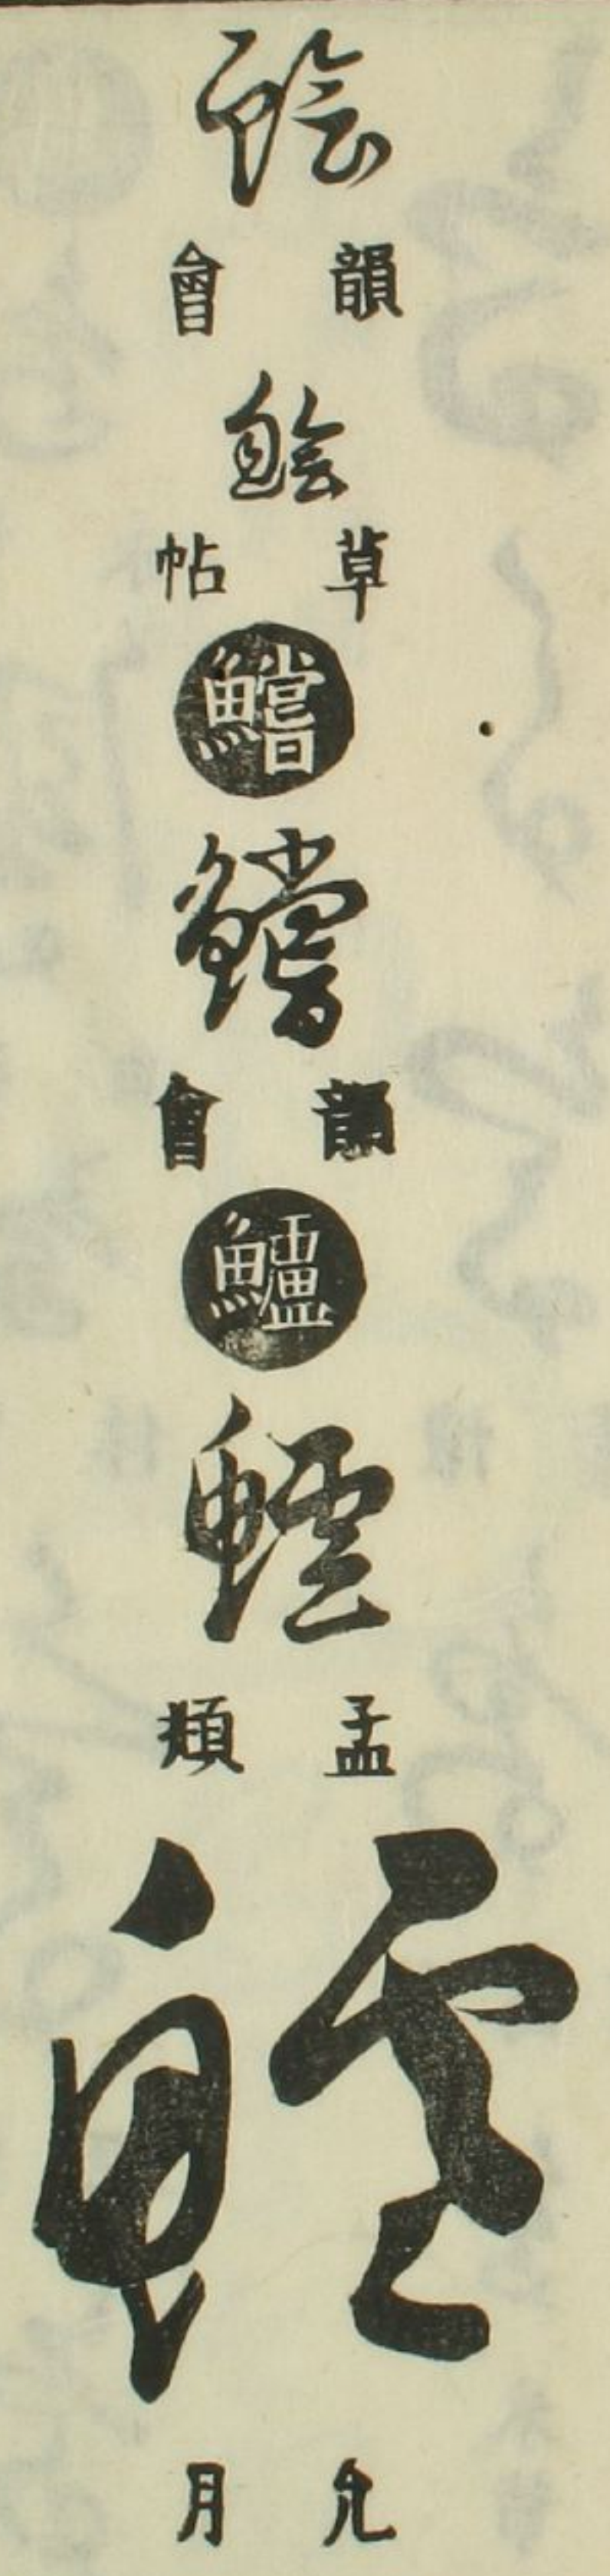 鱠
韻會
鱠
草帖
鱨
鱨
韻會
鱸
鱸
孟頫
鱸
允月